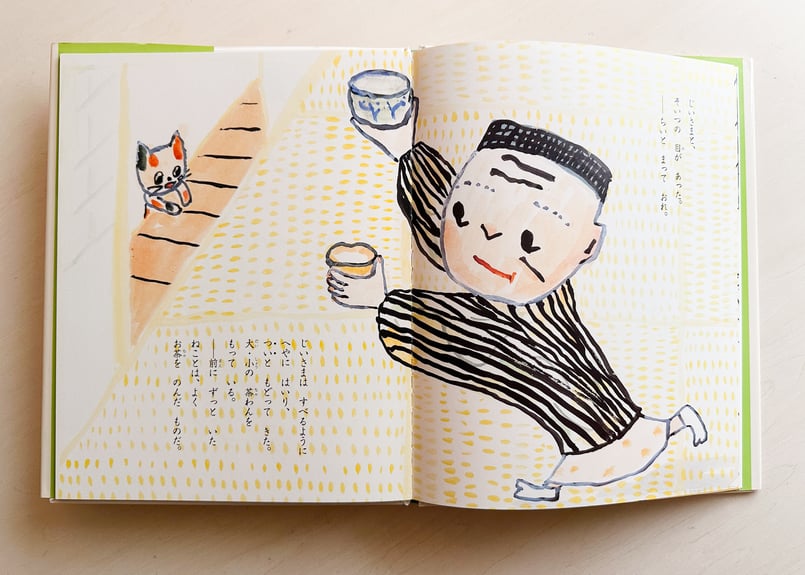 じいさまと、
そいつの 目が あった。
―ちいと まって おれ。
じいさまは すべるように
へやに はいり、
ついと もどって きた。
大・小の 茶わんを
もって いる。
―前に ずっと いた
ねことは、よく
お茶を のんだ ものだ。